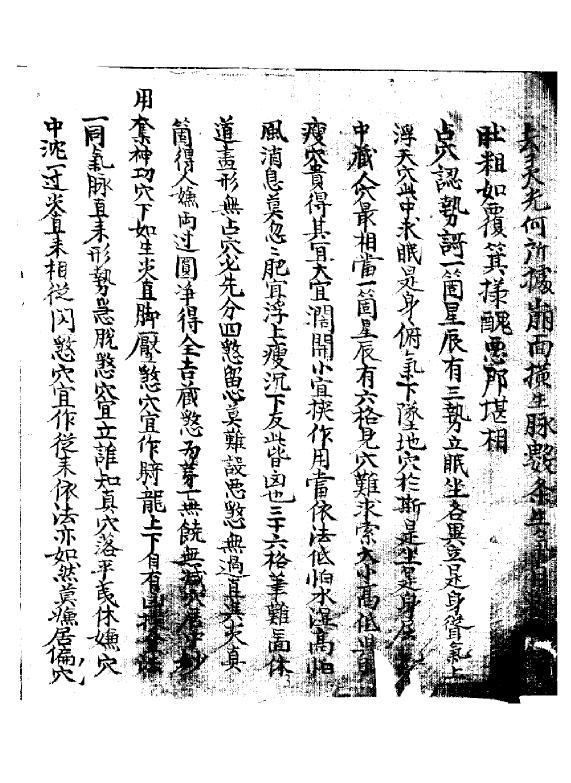 天光何所據崩面橫生脉數条生
肚粗如覆箕樣醜惡那堪相
占穴認勢訶一箇星辰有三勢立眠坐各異立是身聳氣上
浮天穴此中求眠是身俯氣下墜地穴於斯是坐是身屈
中藏人穴最相當一箇星辰有六格見穴難求索大小高低
瘦穴貴得其宜大宜濶開小宜挾作用當依法低怕水濕高怕
風消息莫忽忽肥宜浮上瘦沉下反此皆凶也三十六格筆難畵休
道畫形無占穴先分四煞留心莫難設惡煞無過直與尖真
箇得人嫌両过圓净得全吉藏煞為一無饒無減
用奪神功穴下如生尖直脚厭煞穴宜作騎龍上下自有
一同氣脉直来形勢急脫煞穴宜立誰知真穴落平夷休嫌穴
中沈一边尖直来相從閃煞穴宜作從来依法亦如然莫嫌居偏穴